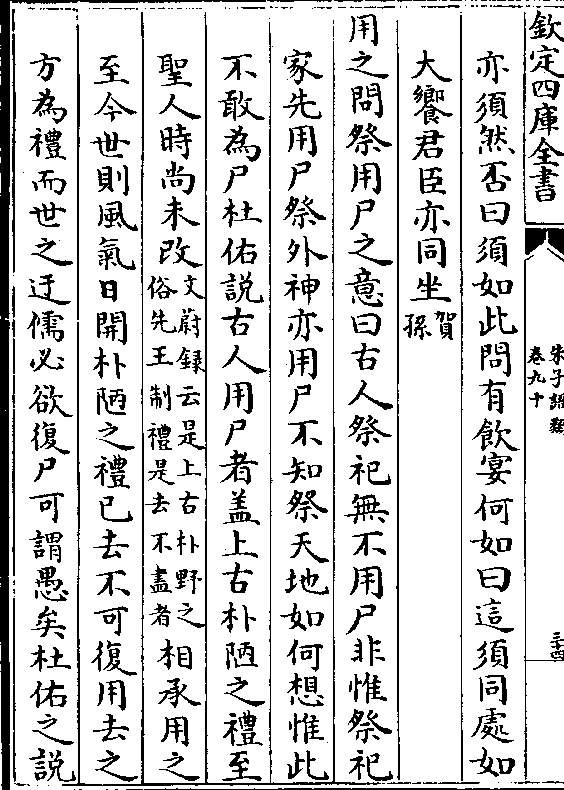 欽定四庫全書
朱子語類
卷九十
三十四
亦須然否曰須如此問有飲宴何如曰這須同處如
大饗君臣亦同坐賀孫
用之問祭用尸之意曰古人祭祀無不用尸非惟祭祀
家先用尸祭外神亦用尸不知祭天地如何想惟此
不敢為尸杜佑說古人用尸者盖上古朴陋之禮至
聖人時尚未改文蔚録云是上古朴野之俗先王制禮是去不盡者相承用之
至今世則風氣日開朴陋之禮已去不可復用去之
方為禮而世之迂儒必欲復尸可謂愚矣杜佑之說